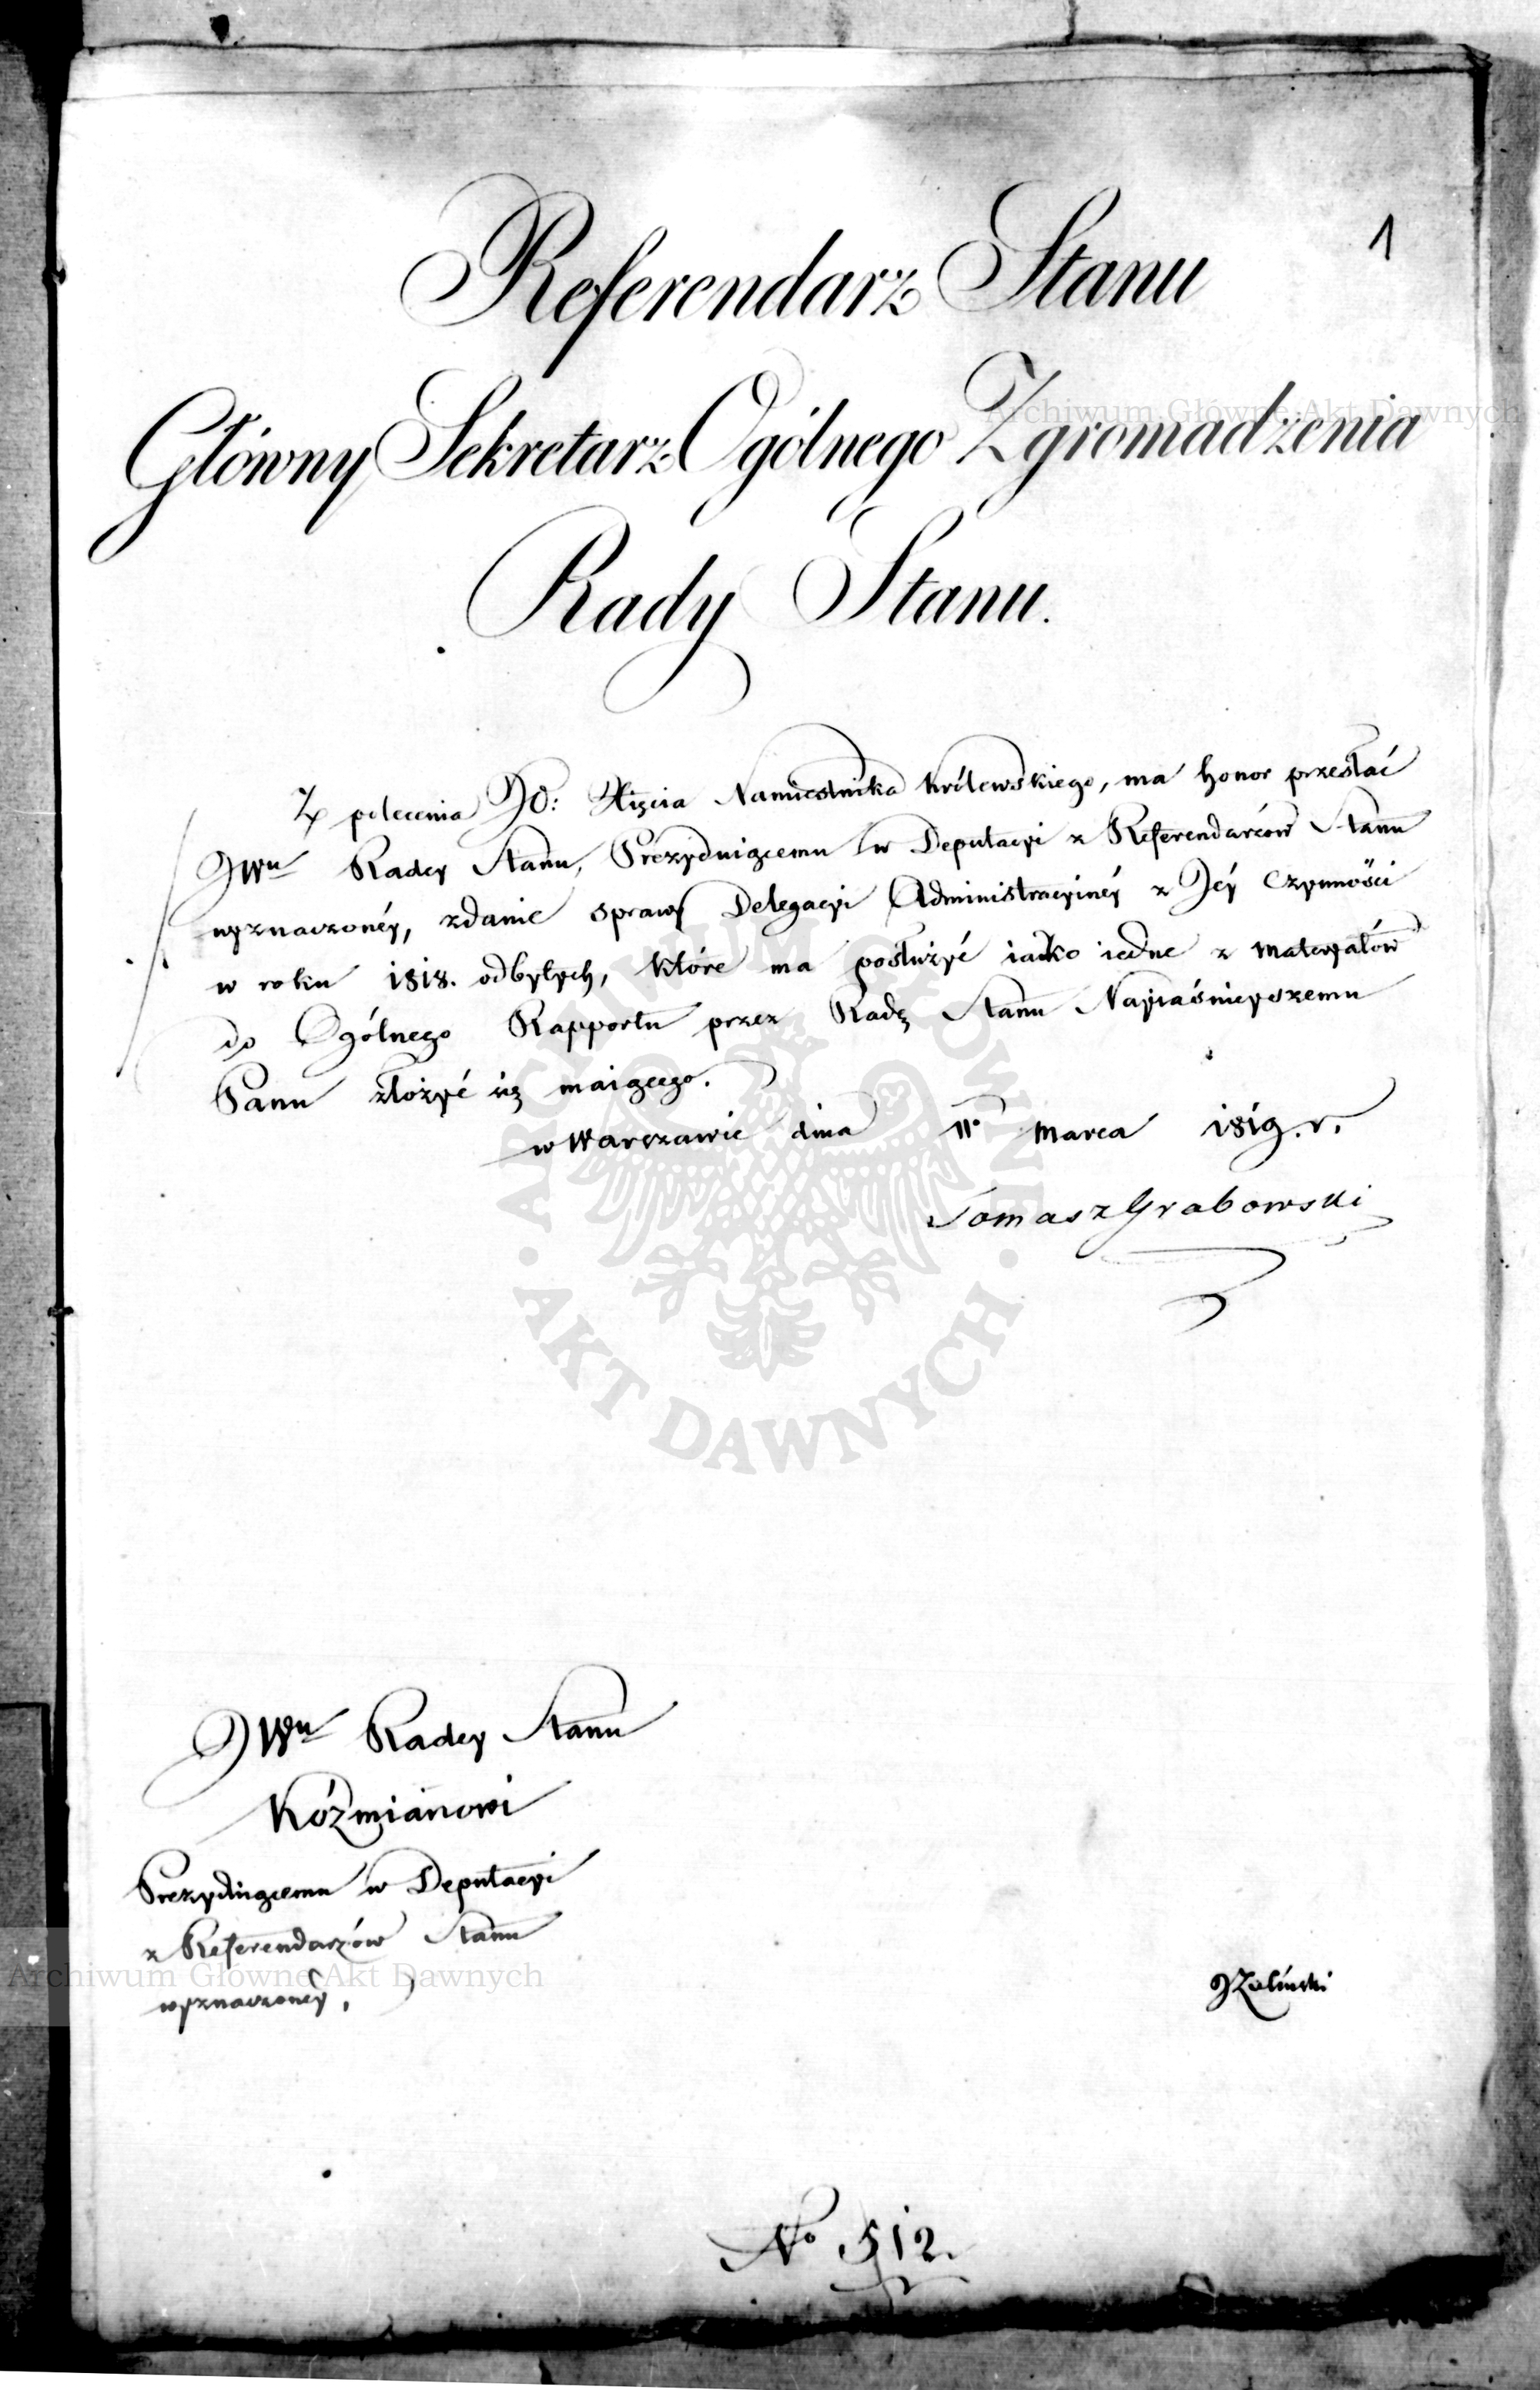 1
Referendarz Stanu
Główny Sekretarz Ogólnego Zgromadzenia
Rady Stanu.
Z polecenia JO: Xięcia Namiestnika Królewskiego, ma honor przesłać
JWu Radcy Stanu, Prezyduiącemu w Deputacyi z Referendarzów Stanu
wyznaczonéy, zdanie sprawy Delegacyi Administracyinéy z Jéy Czynności
w roku 1818. odbytych, które ma posłużyć iako iedne z materyałów
do Ogólnego Rapportu przez Radę Stanu Nayiaśnieyszemu
Panu złożyć się maiącego.
w Warszawie dnia 11o marca 1819. r.
Tomasz Grabowski
JWu Radcy Stanu
Kóźmianowi
Prezyduiącemu w Deputacyi
z Referendarzów Stanu
wyznaczonéy,
JZaliwski
No 512.
Archiwum Główne Akt Dawnych
Archiwum Główne Akt Dawnych
ARCHIWUM GŁÓWNE
AKT DAWNYCH